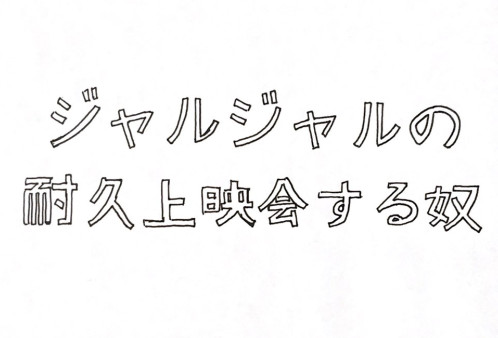 ジャルジャルの
耐久上映会する奴